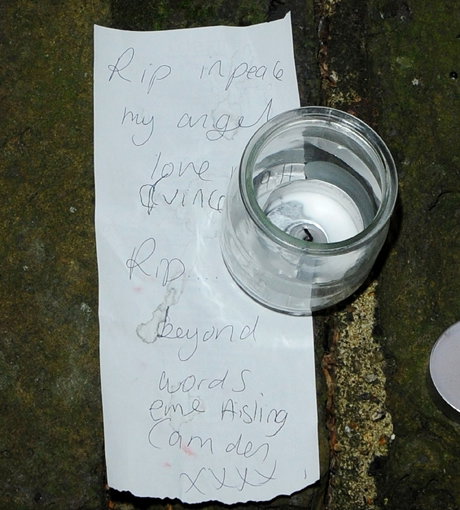 Rip in peace
my angel
love
Quince
Rip.....
beyond
words
eme Aisling
Camden
xxxx